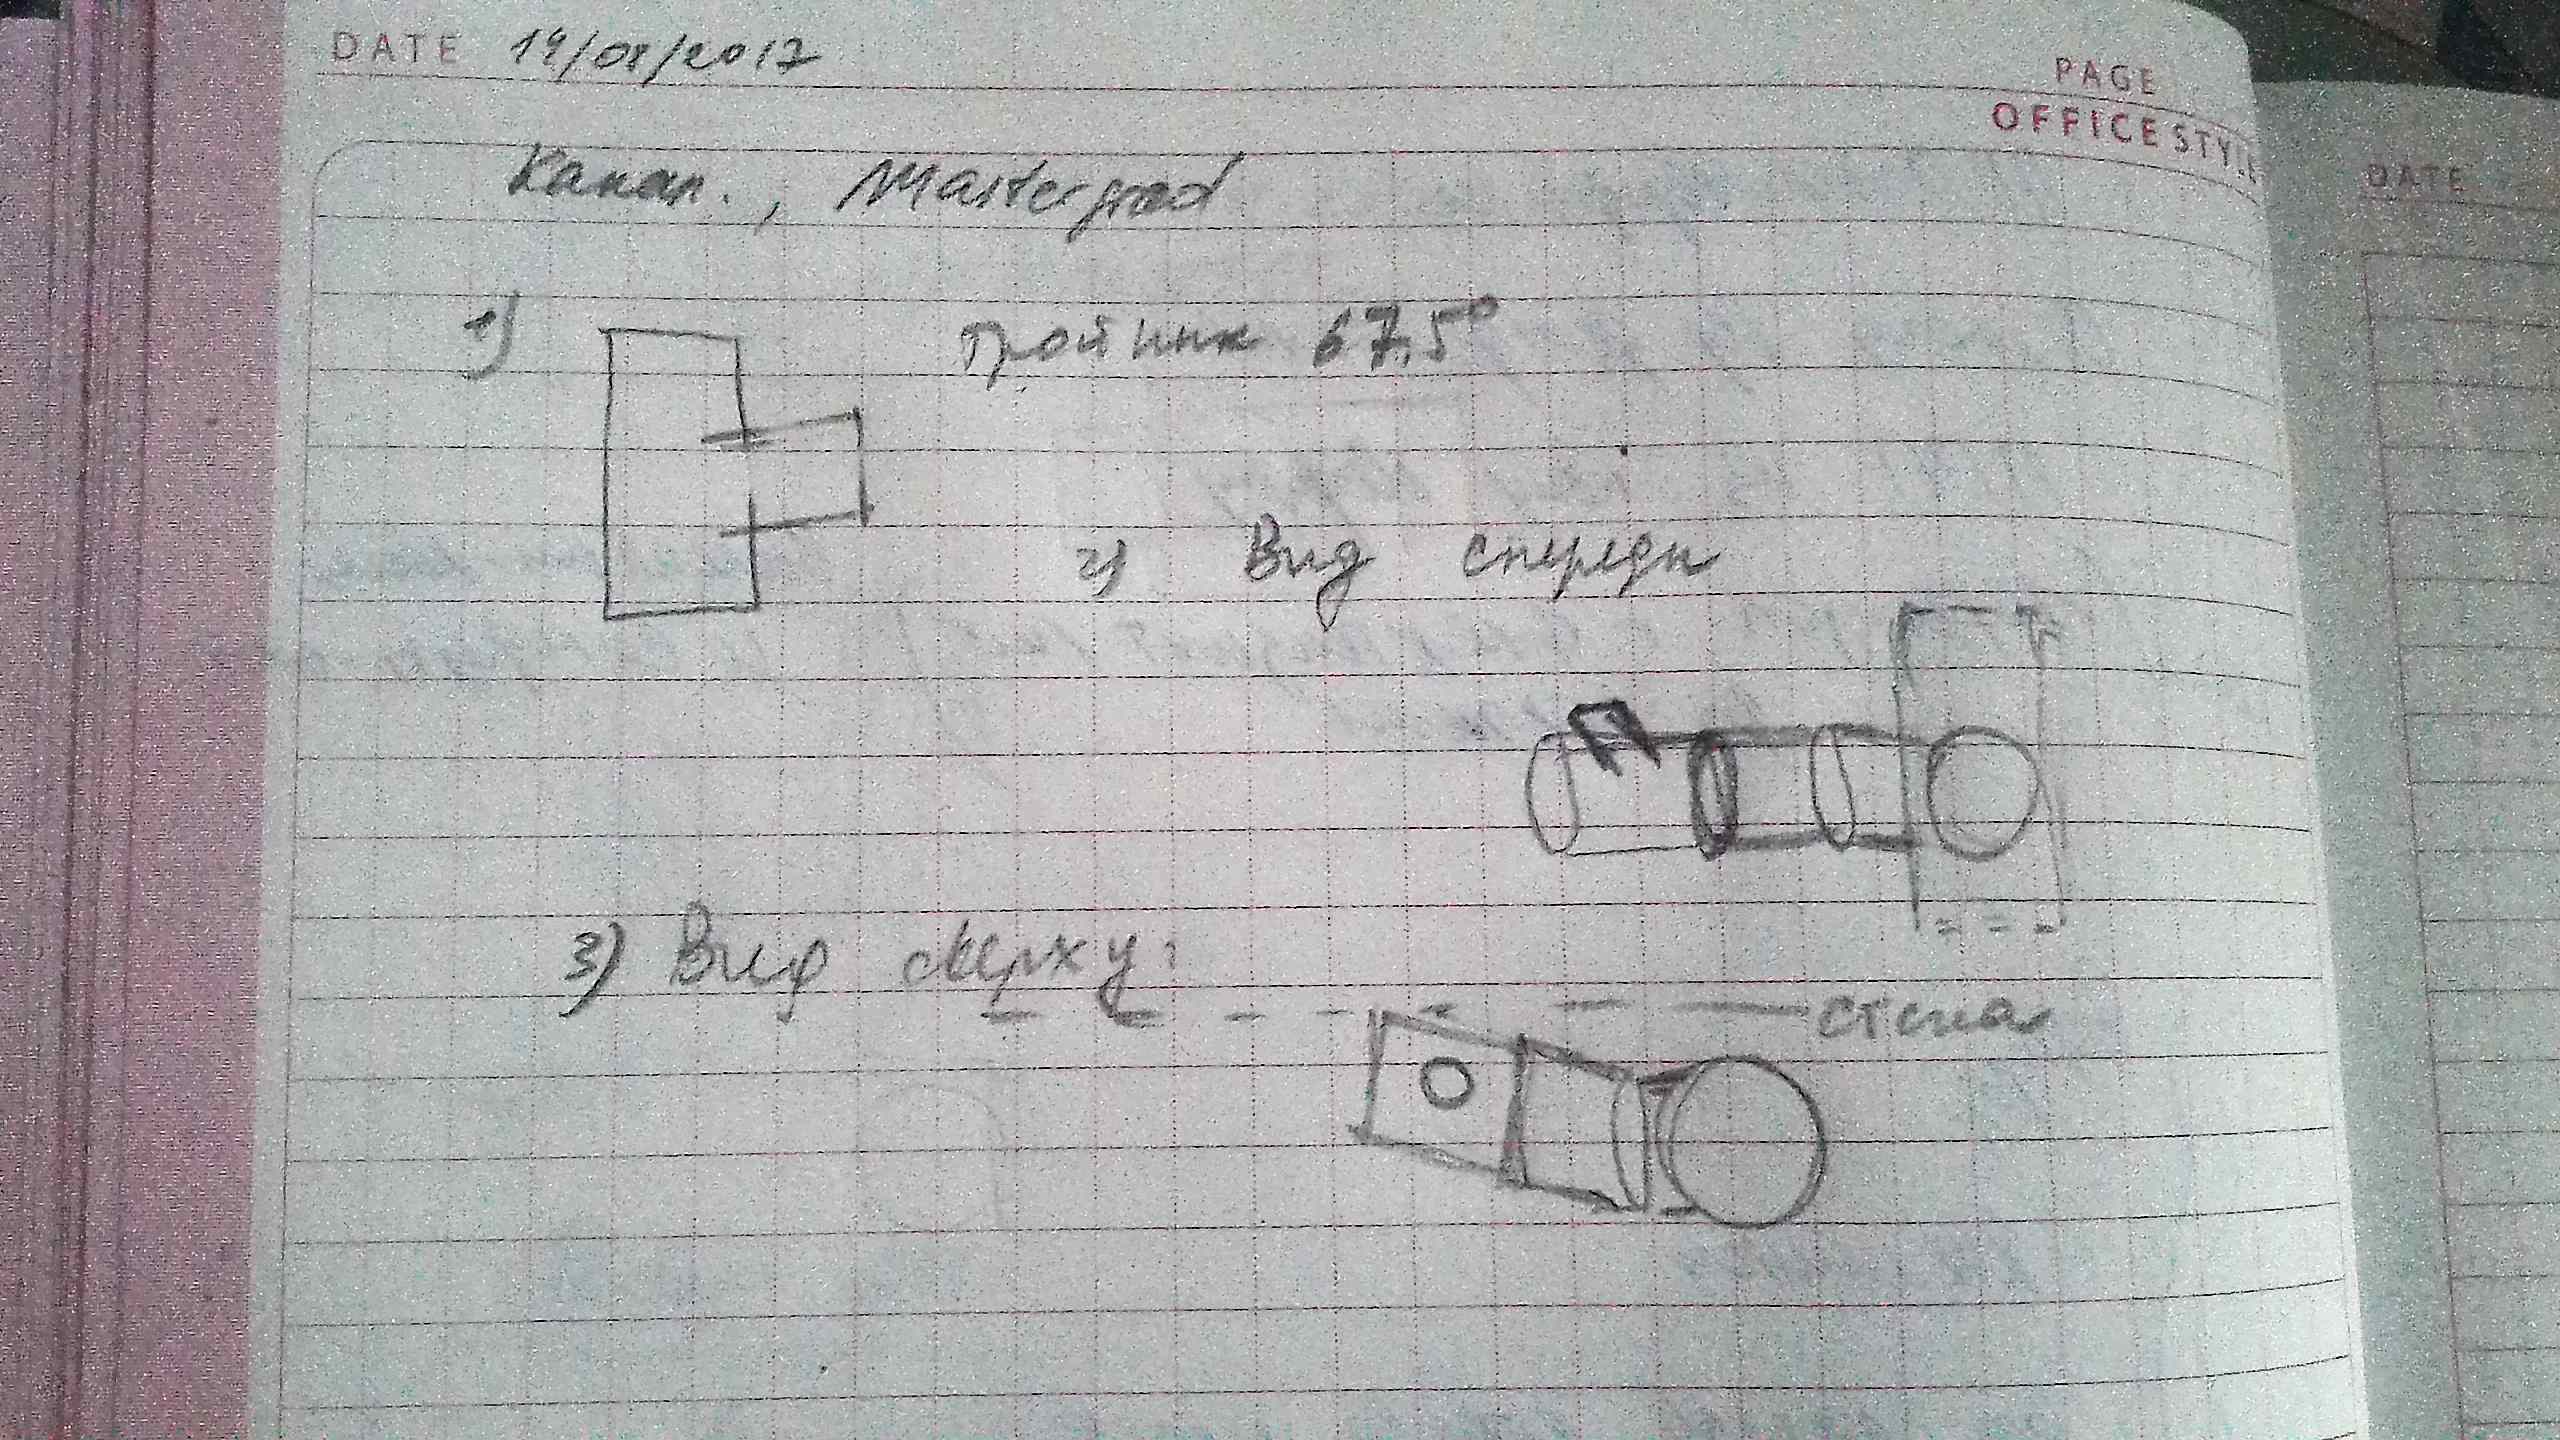 DATE 14/08/2017
PAGE
OFFICE STYLE
DATE
Канал., Mastergrad
1) Тройник 67,5°
2) Вид спереди
3) Вид сверху:
стена